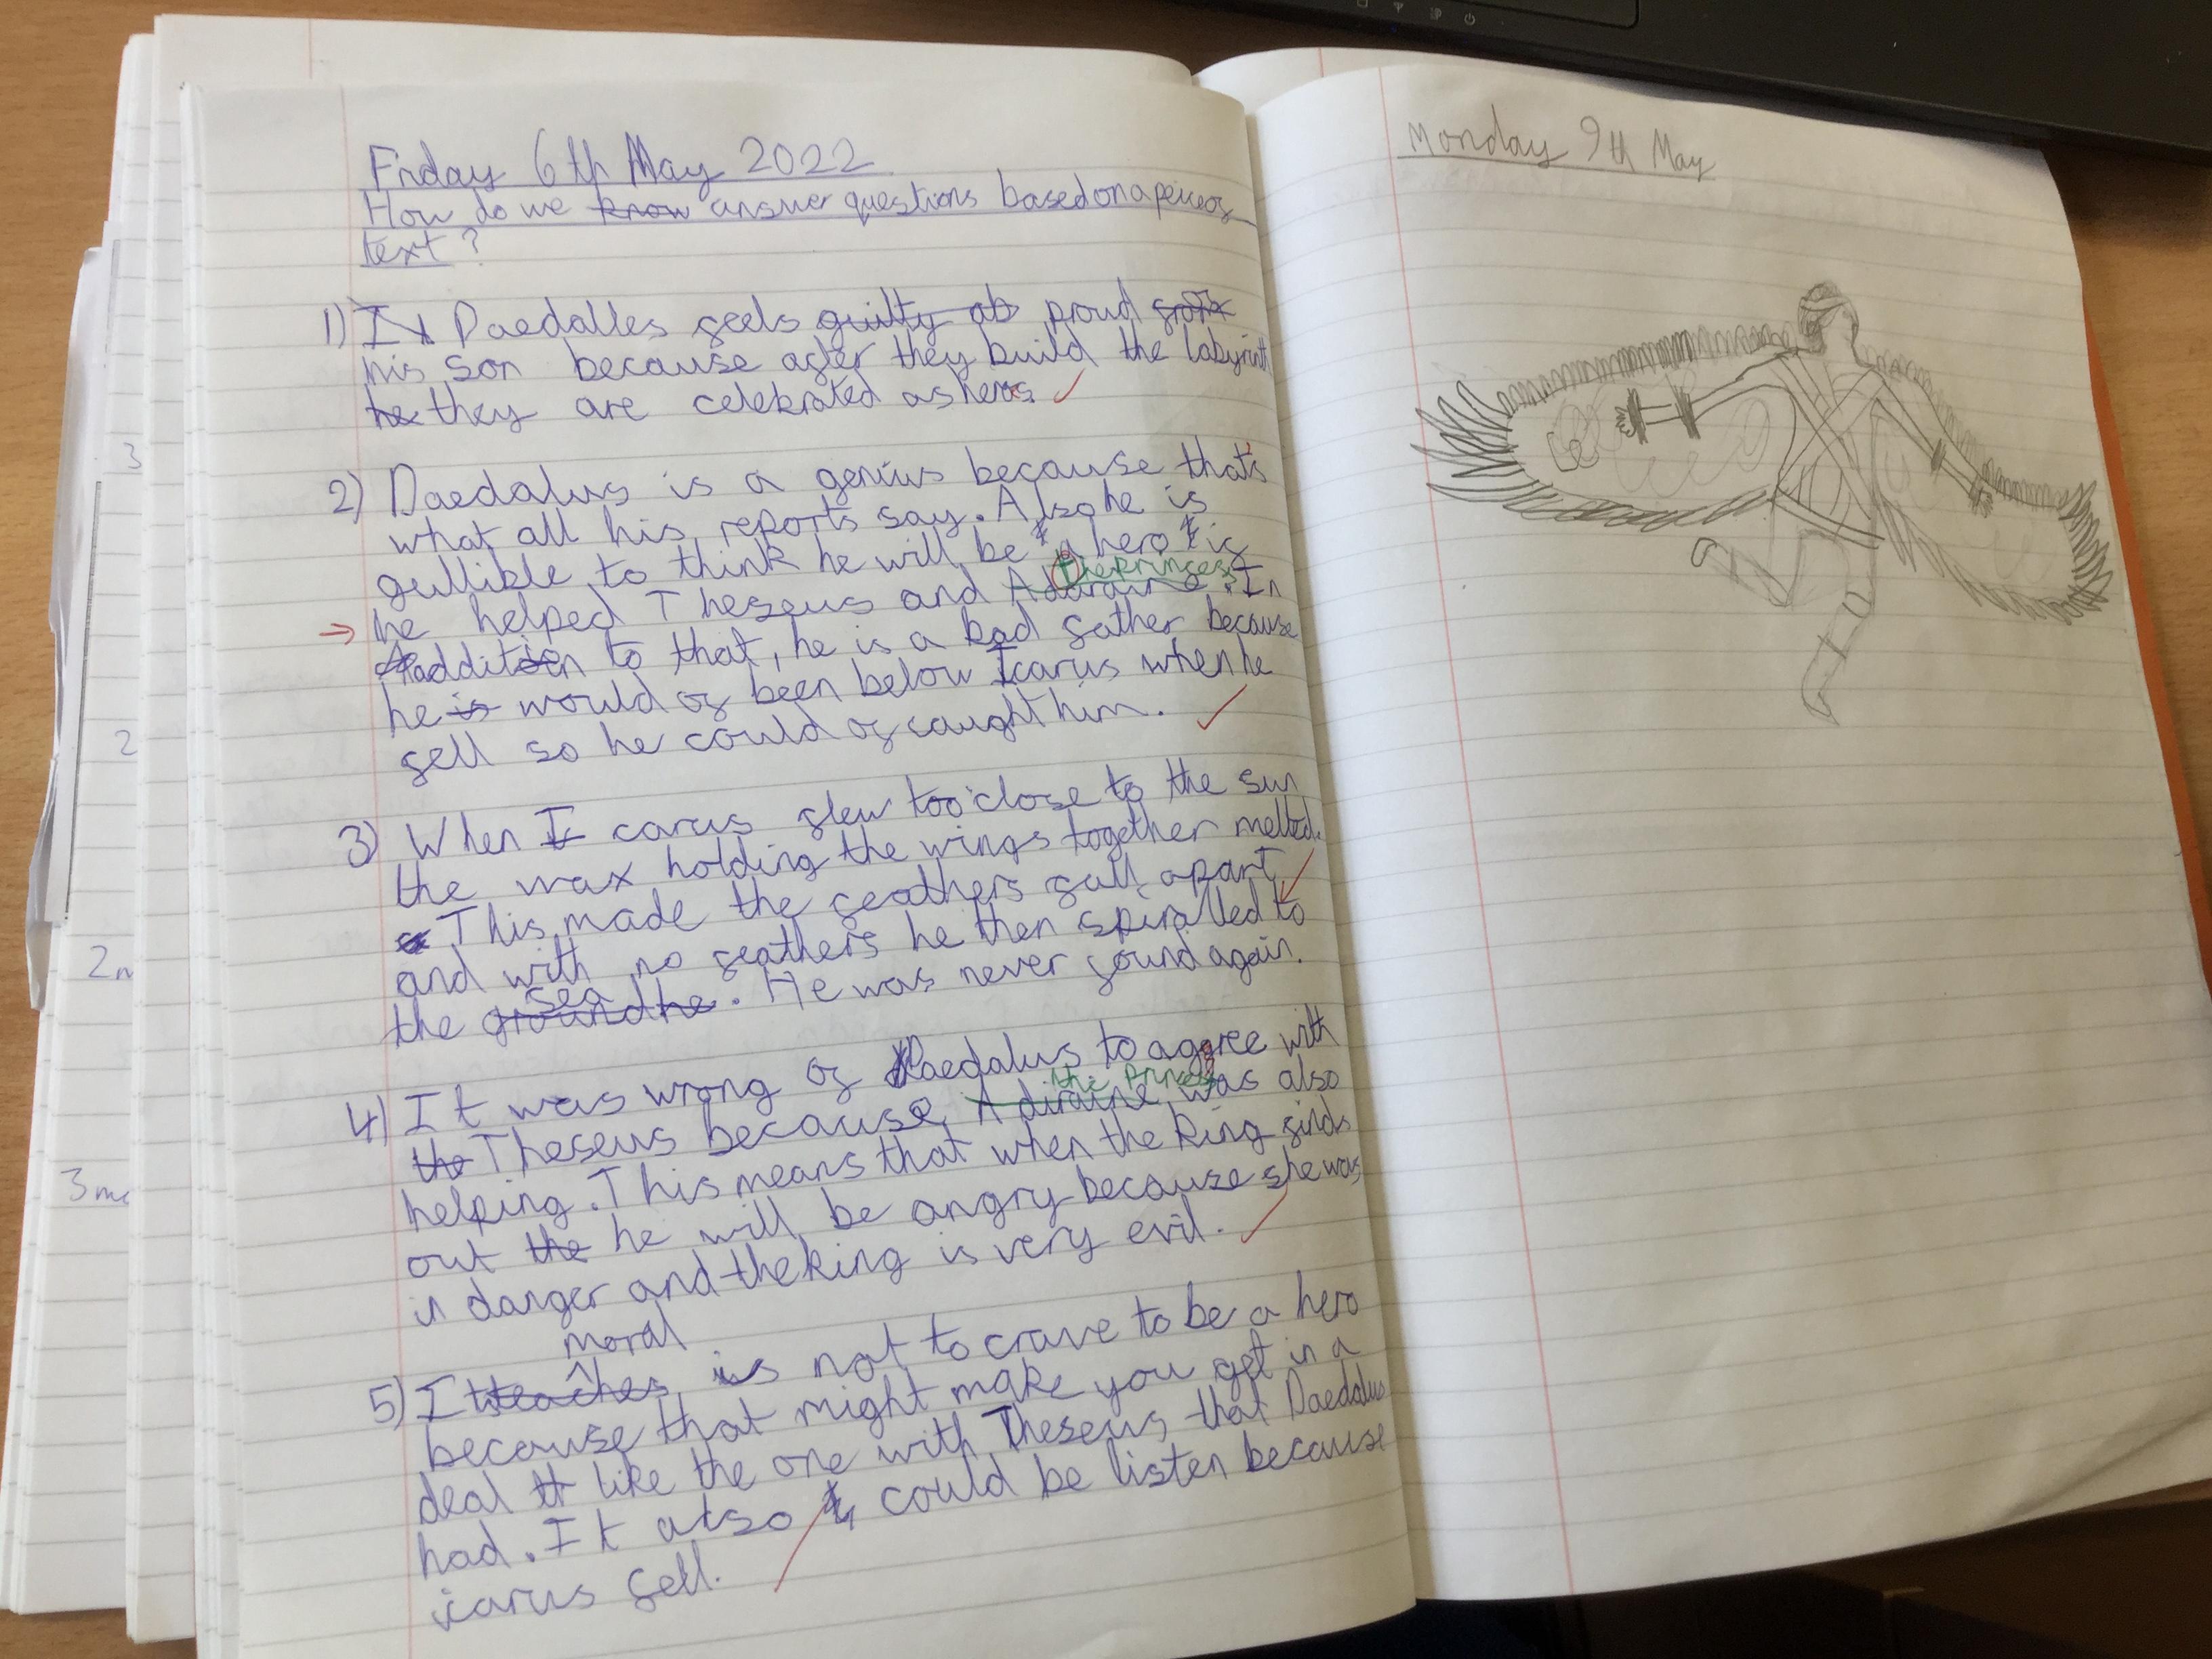 Friday 6th May 2022
How do we know answer questions based on a peice of
text?
1) I Daedalles feels guilty ab proud from
his son because after they build the labyrinth
he they are celebrated as heros.
2) Daedalus is a genius because that's
what all his reports say. Also he is
gullible to think he will be a hero if
the Princess
he helped Theseus and Adiraine. In
addition to that, he is a bad father because
he is would of been below Icarus when he
fell so he could of caught him.
3) When Icarus flew too close to the sun
the wax holding the wings together melted.
This made the feathers fall apart
and with no feathers he then spiralled to
sea
the ground he. He was never found again.
4) It was wrong of Daedalus to aggree with
the Princess
the Theseus because Adiraine was also
helping. This means that when the king finds
out the he will be angry because she was
in danger and the king is very evil.
moral
5) It teaches is not to crave to be a hero
because that might make you get in a
deal tt like the one with Theseus that Daedalus
had. It also could be listen because
icarus fell.
3
2
2m
3mc
Monday 9th May